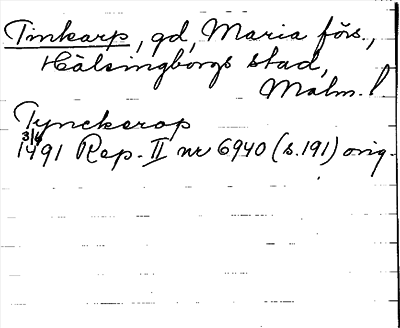 Tinkarp, gd, Maria förs.,
Hälsingborgs stad,
Malm. l
Tynckerop
3/6
1491 Rep. II nr 6940 (s. 191) orig.